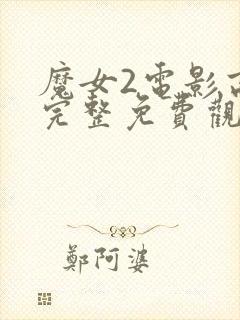 魔女2電影高
完整免費觀
鄭阿婆